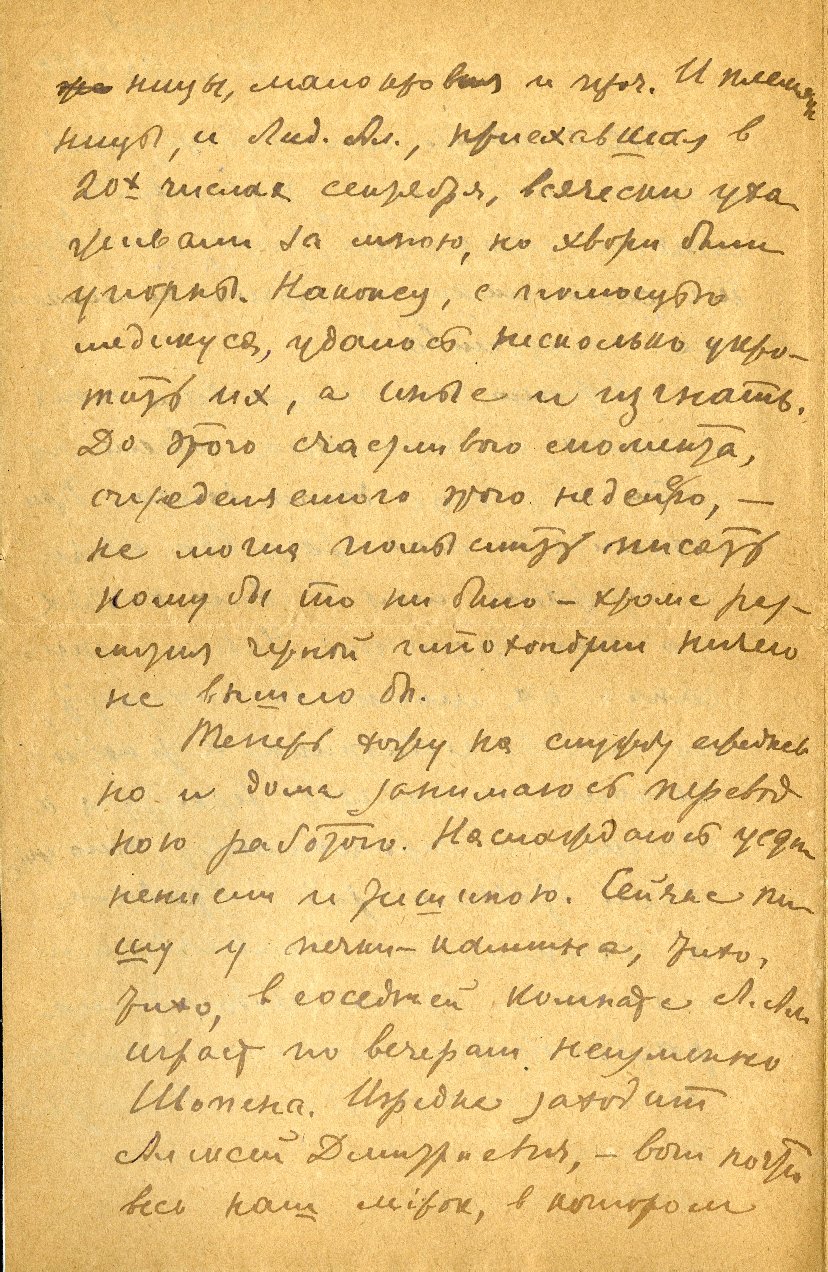 ницы, малокровия и проч. И племян
ницы, и Лид. Ал., приехавшая в
20х числах сентября, всячески уха
живали за мною, но хвори были
упорны. Наконец, с помощью
медикуса, удалось несколько укро-
тить их, а иные и изгнать.
До этого счастливого момента,
определяемого этою неделею, —
не могла помыслить писать
кому бы то ни было – кроме
черной гипохондрии ничего
не вышло бы.
Теперь хожу на службу ежеднев
но и дома занимаюсь перевод
ною работою. Наслаждаюсь уеди
нением и тишиною. Сейчас пи-
шу у печки-камина, тихо,
тихо, в соседней комнате Л. Ал.
играет по вечерам неизменно
Шопена. Изредка заходит
Алексей Дмитриевич, – вот почти
весь наш мiрок, в котором